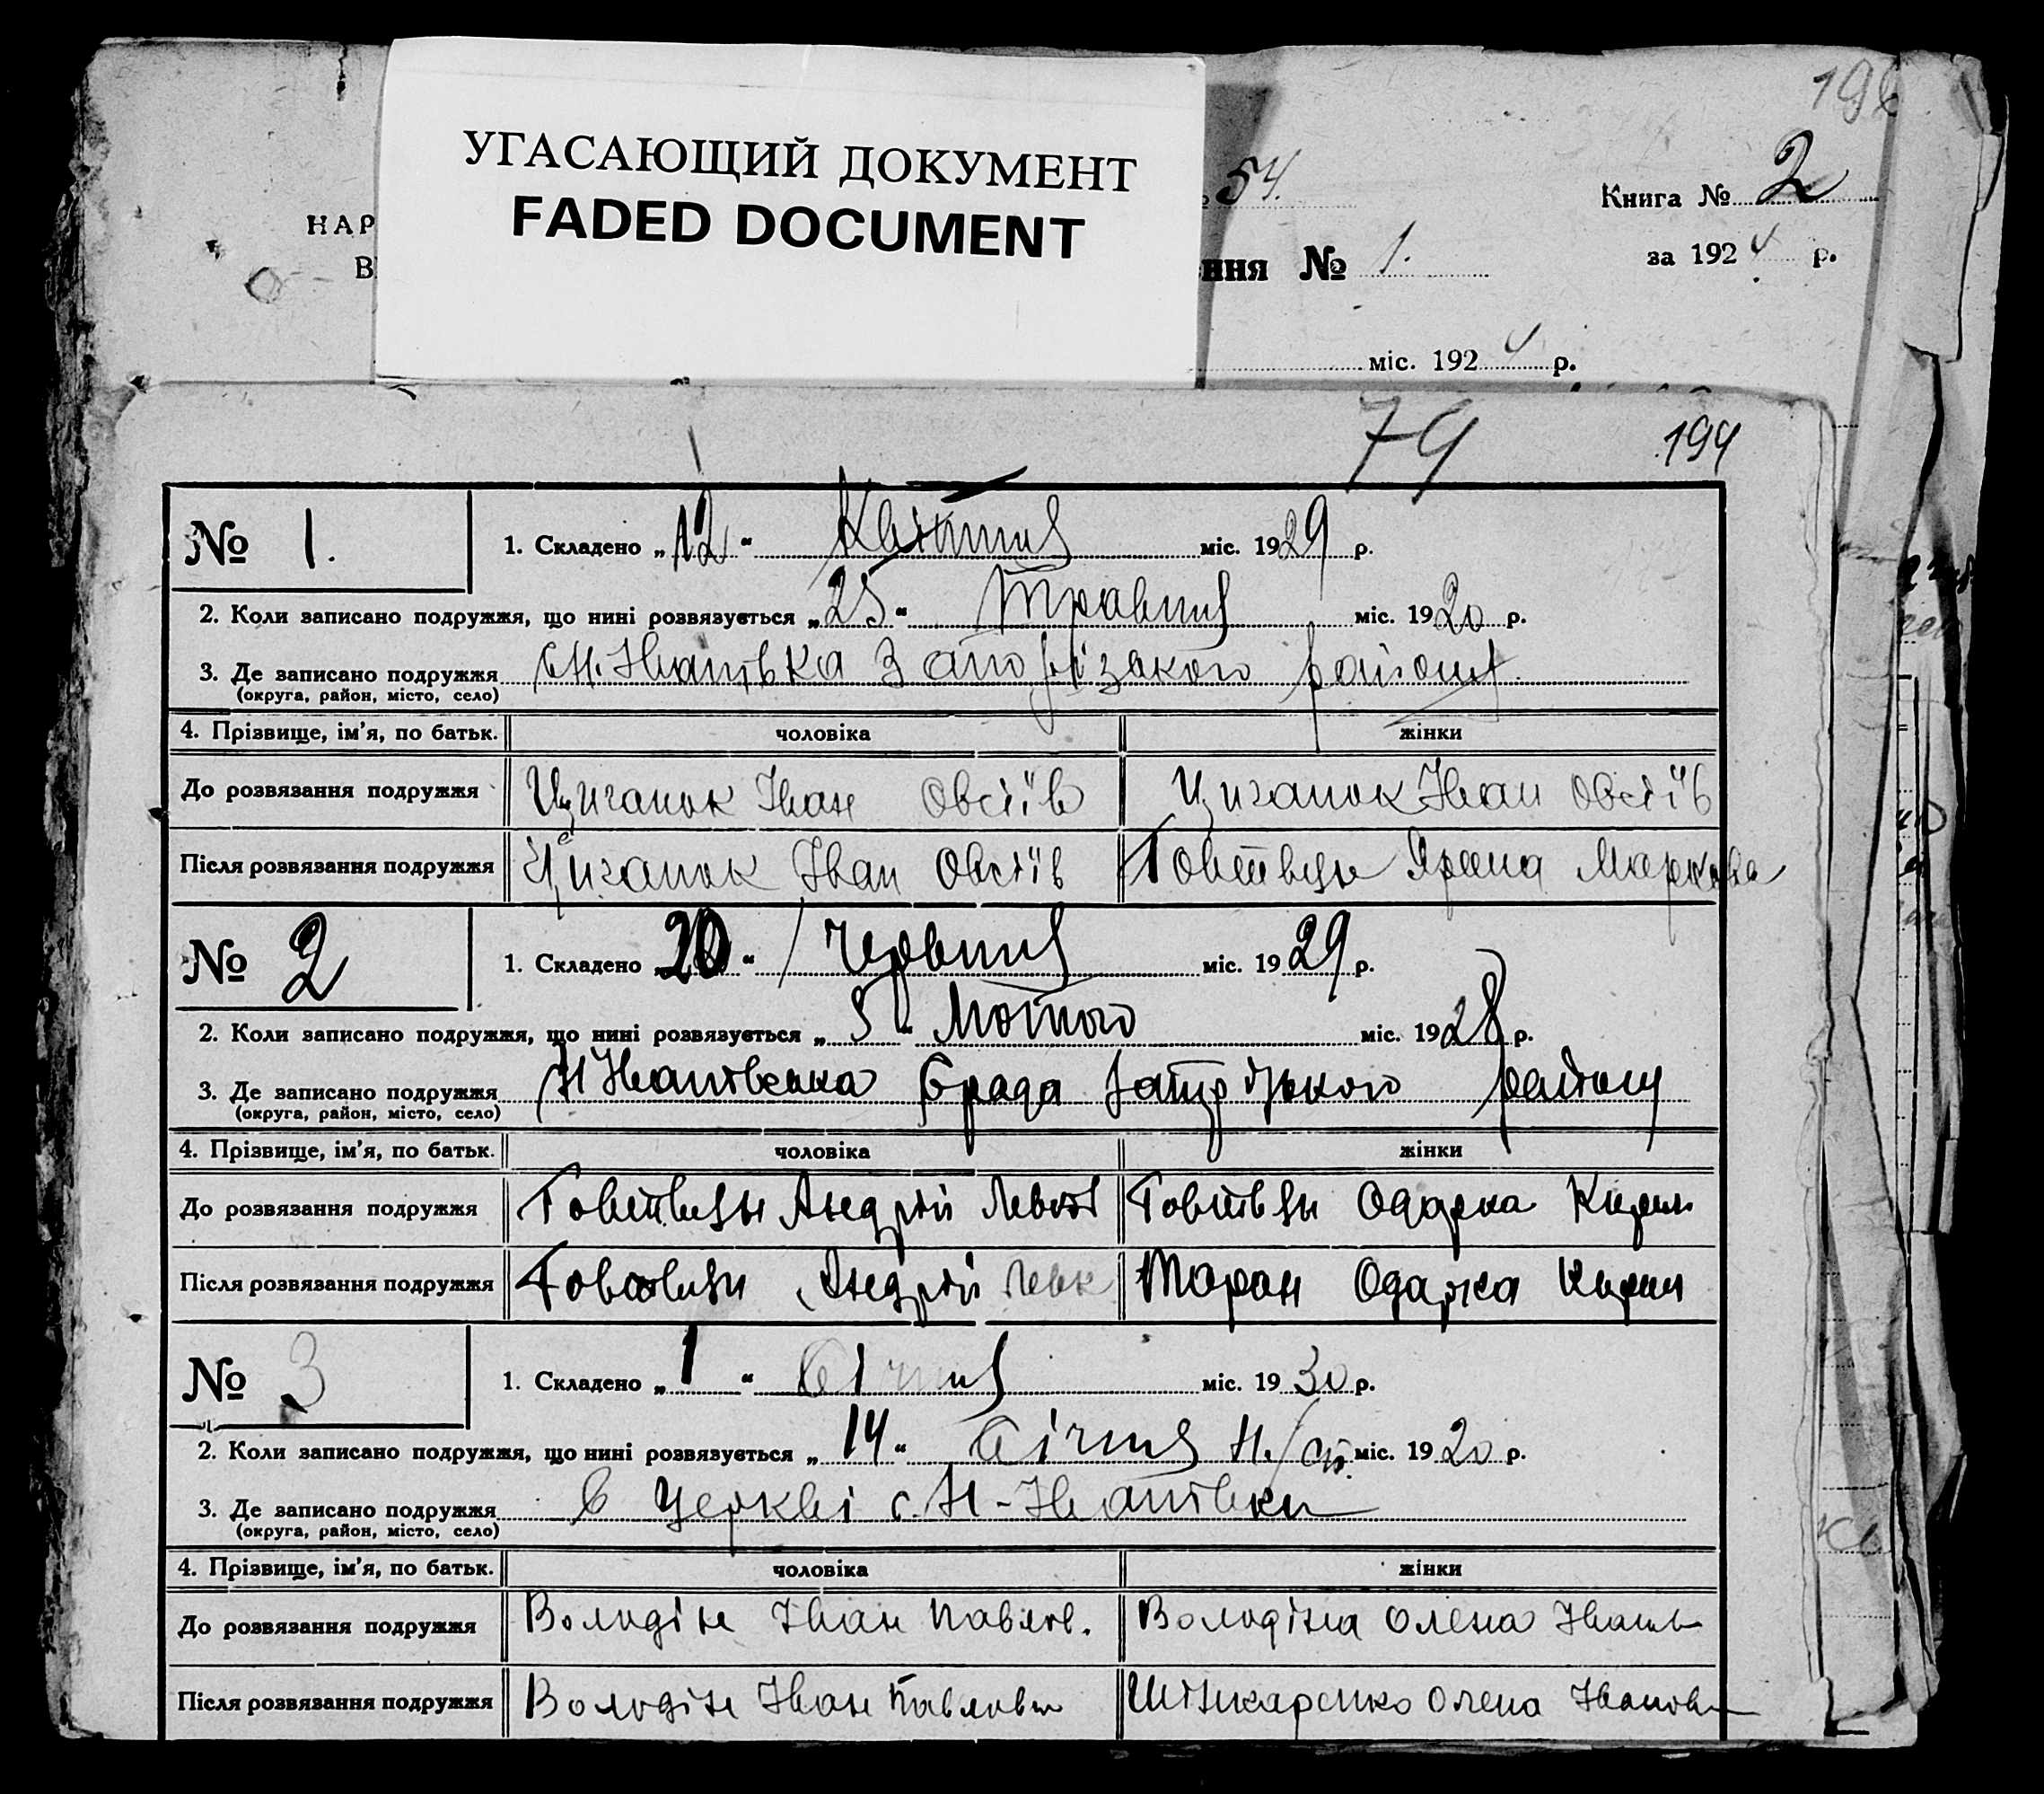 УГАСАЮЩИЙ ДОКУМЕНТ
FADED DOCUMENT
НАР
В
54.
Книга № 2
ння № 1.
за 1924 р.
міс. 1924 р.
79
194
№ 1.
1. Складено „12“ Квітня міс. 1929 р.
2. Коли записано подружжя, що нині розвязується „25“ Травня міс. 1920 р.
3. Де записано подружжя с Н. Іванівка Запорізького району
(округа, район, місто, село)
4. Прізвище, ім'я, по батьк. чоловіка жінки
До розвязання подружжя Циганок Іван Овсіїв Циганок Іван Овсіїв
Після розвязання подружжя Циганок Іван Овсіїв Говтвець Ярина Маркова
№ 2
1. Складено „20“ Червня міс. 1929 р.
2. Коли записано подружжя, що нині розвязується „5“ Лютого міс. 1928 р.
3. Де записано подружжя Н Іванівська Срада району
(округа, район, місто, село)
4. Прізвище, ім'я, по батьк. чоловіка жінки
До розвязання подружжя Андрій Одарка Кирил
Після розвязання подружжя Андрій Левк Таран Одарка Кирил
№ 3
1. Складено „1“ Січня міс. 1930 р.
2. Коли записано подружжя, що нині розвязується „14“ Січня н./ст. міс. 1920 р.
3. Де записано подружжя В Церкві с. Н-Іванівки
(округа, район, місто, село)
4. Прізвище, ім'я, по батьк. чоловіка жінки
До розвязання подружжя Володін Іван Павлов. Володіна Олена Іванів
Після розвязання подружжя Володін Іван Павлович Шинкаренко Олена Іванов